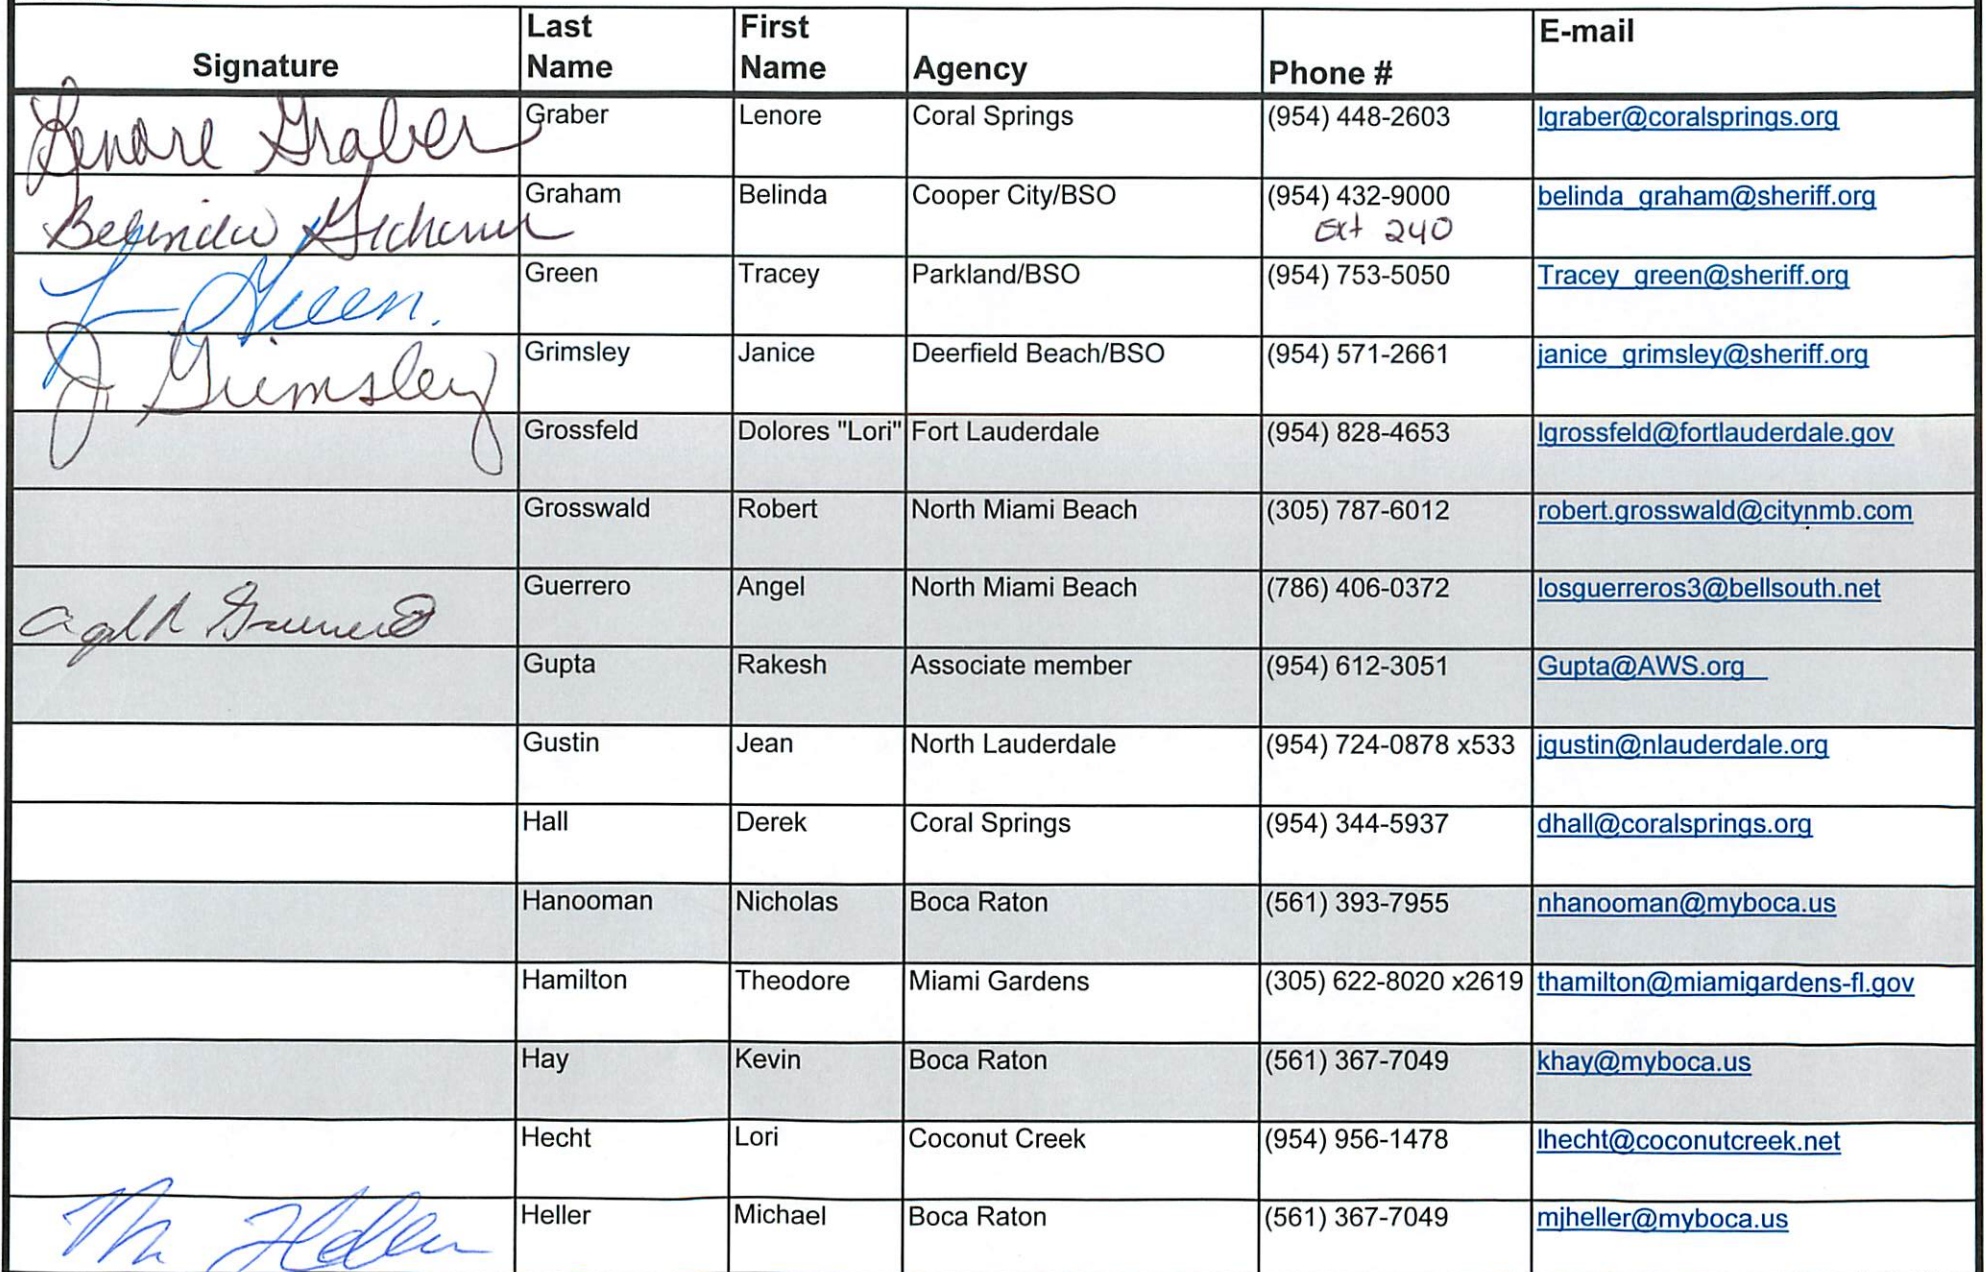 Signature Last Name First Name Agency Phone # E-mail
Lenore Graber Graber Lenore Coral Springs (954) 448-2603 lgraber@coralsprings.org
Belinda Graham Graham Belinda Cooper City/BSO (954) 432-9000 belinda_graham@sheriff.org
Ext 240
T Green. Green Tracey Parkland/BSO (954) 753-5050 Tracey_green@sheriff.org
J. Grimsley Grimsley Janice Deerfield Beach/BSO (954) 571-2661 janice_grimsley@sheriff.org
Grossfeld Dolores "Lori" Fort Lauderdale (954) 828-4653 lgrossfeld@fortlauderdale.gov
Grosswald Robert North Miami Beach (305) 787-6012 robert.grosswald@citynmb.com
Guerrero Angel North Miami Beach (786) 406-0372 losguerreros3@bellsouth.net
Gupta Rakesh Associate member (954) 612-3051 Gupta@AWS.org
Gustin Jean North Lauderdale (954) 724-0878 x533 jgustin@nlauderdale.org
Hall Derek Coral Springs (954) 344-5937 dhall@coralsprings.org
Hanooman Nicholas Boca Raton (561) 393-7955 nhanooman@myboca.us
Hamilton Theodore Miami Gardens (305) 622-8020 x2619 thamilton@miamigardens-fl.gov
Hay Kevin Boca Raton (561) 367-7049 khay@myboca.us
Hecht Lori Coconut Creek (954) 956-1478 lhecht@coconutcreek.net
M Heller Heller Michael Boca Raton (561) 367-7049 mjheller@myboca.us